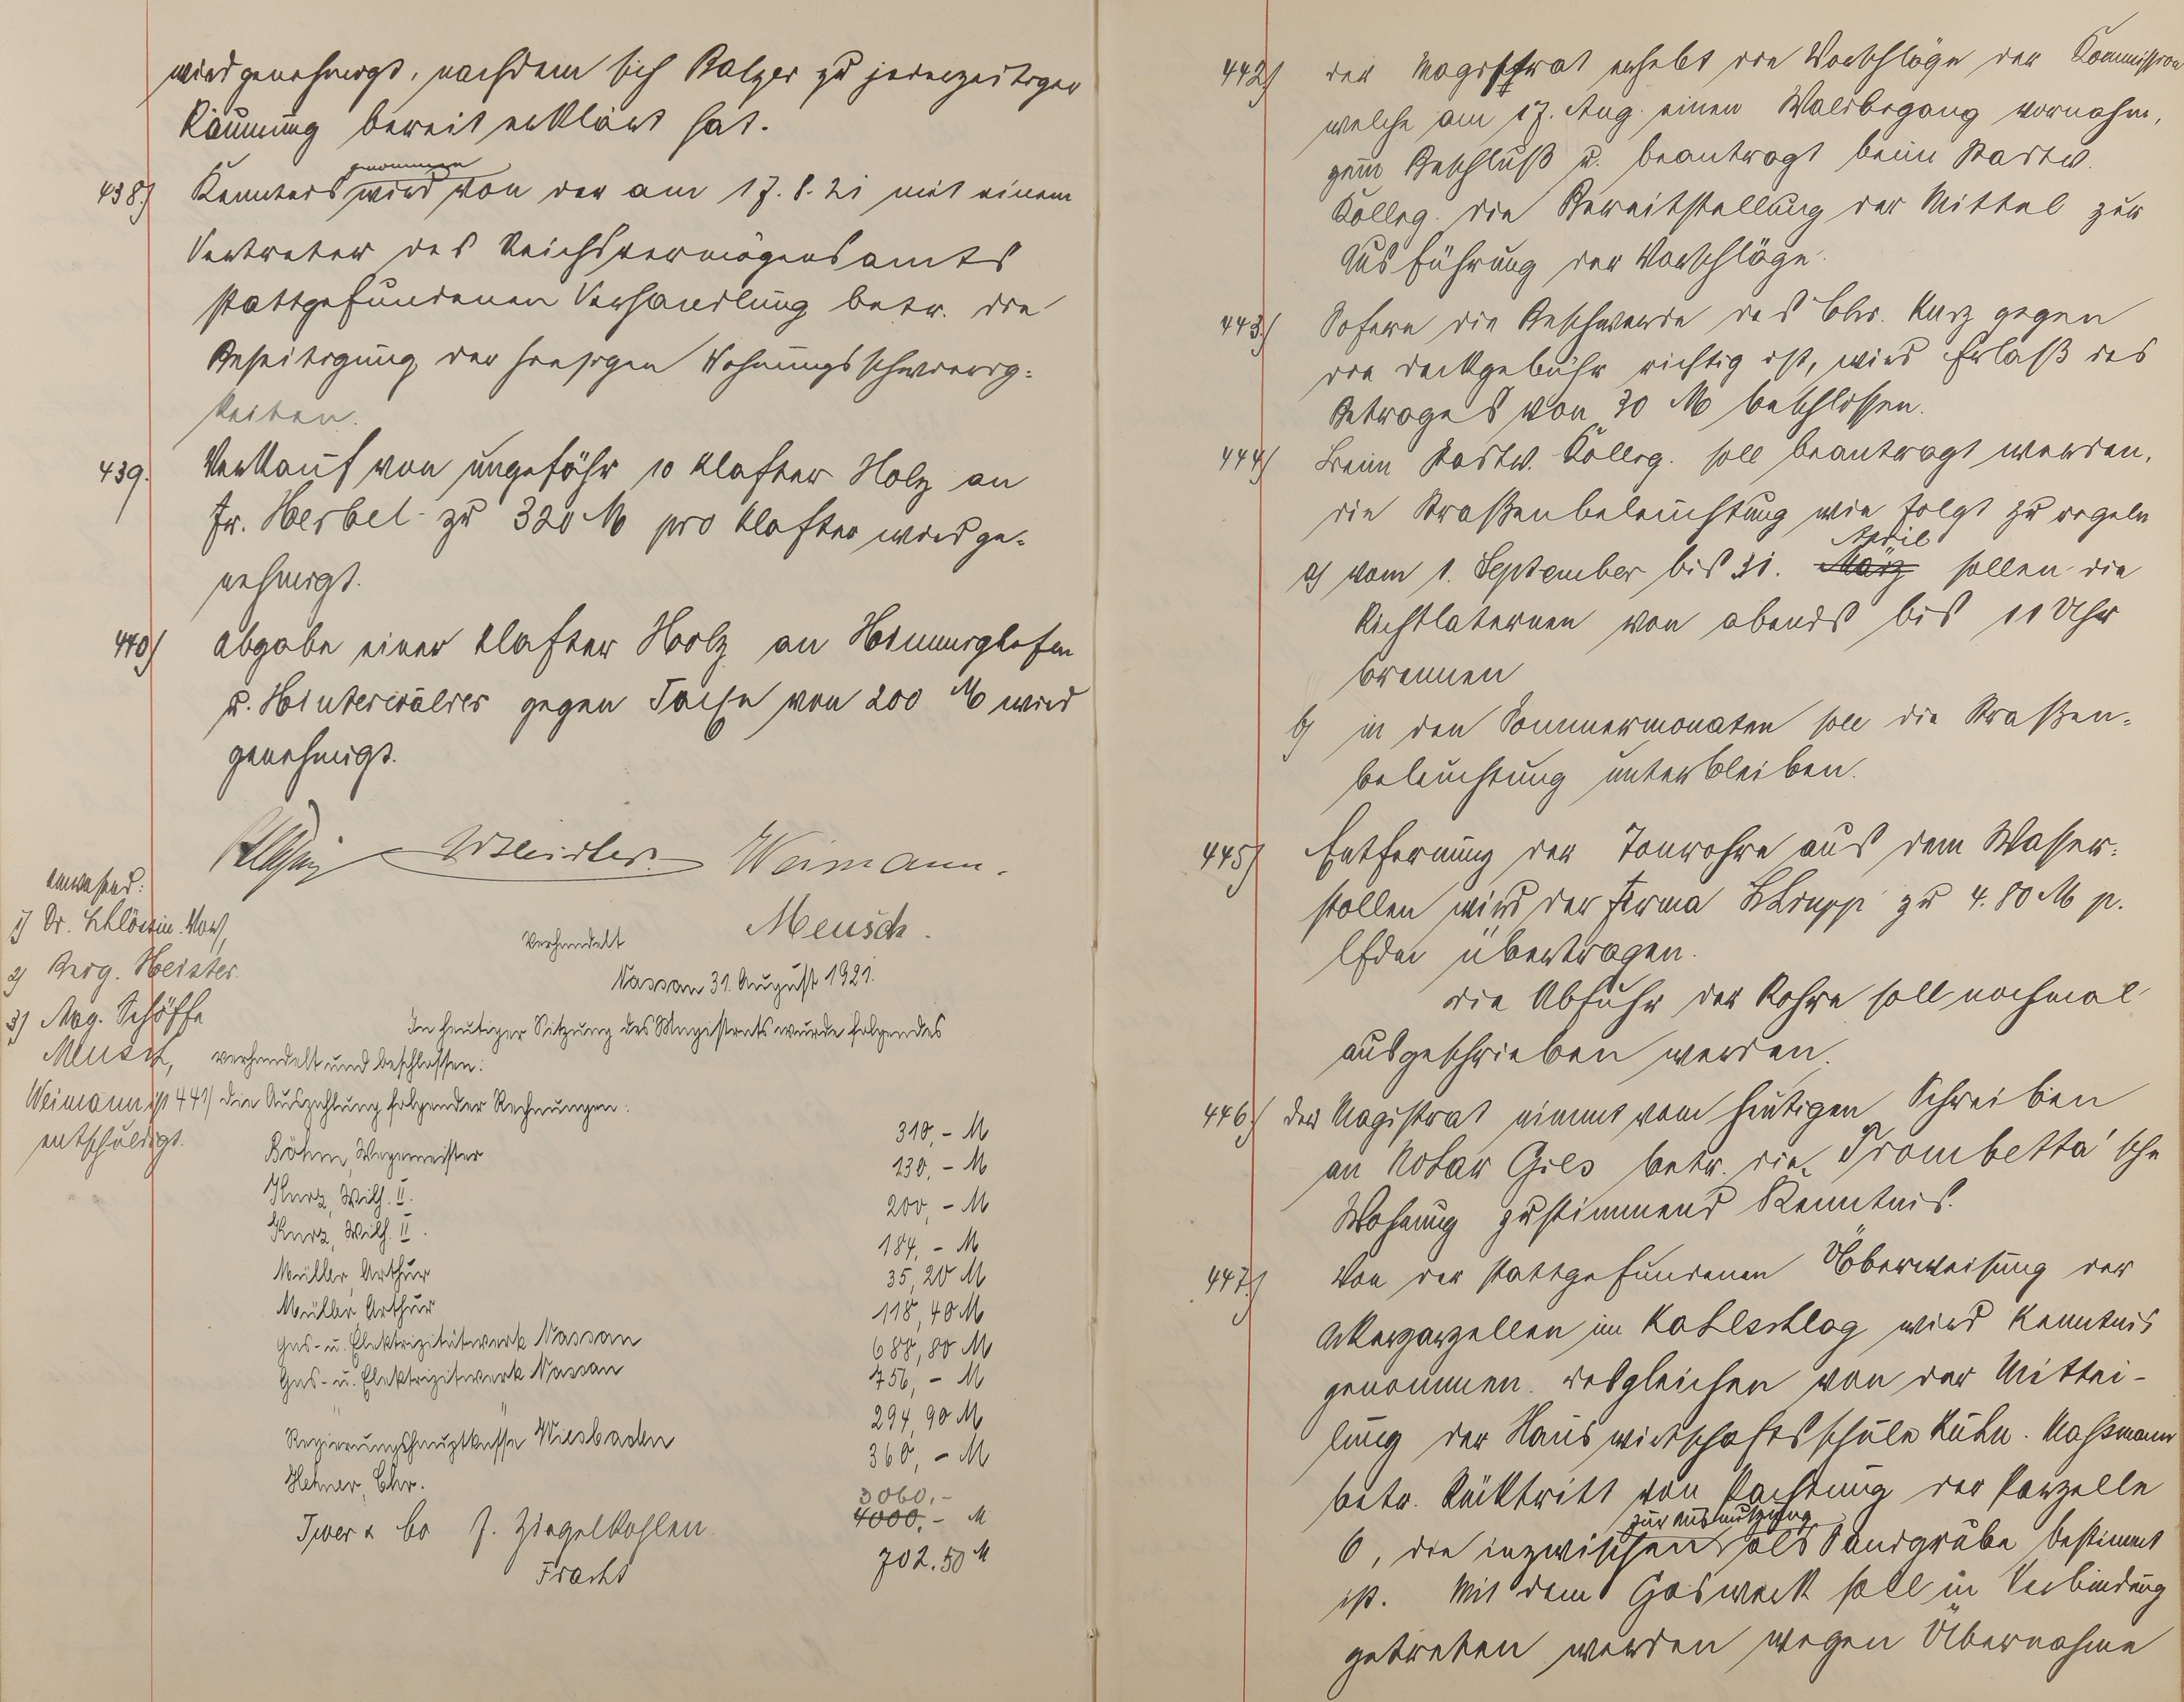 wird genehmigt, nachdem sich Balzer zu jederzeitiger
Räumung bereit erklärt hat.
438.) Kenntnis genommen wird von der am 17.8.21 mit einem
Vertreter des Reichsvermögensamts
stattgefundenen Verhandlung betr. die
Beseitigung der hiesigen Wohnungsschwierig-
keiten.
439. Verkauf von ungefähr 10 Klafter Holz an
Fr. Herbel zu 320 M pro Klafter wird ge-
nehmigt.
440) Abgabe einer Klafter Holz an Himmighofen
u. Hinterwälder gegen Taxe von 200 M wird
genehmigt.
Weimann.
Meusch.
Anwesend:
1) Dr. Schlössin. Vors,
2) Beig. Heister.
3) Mag. Schöffe
Meusch,
Weimann ist
entschuldigt.
Verhandelt
Nassau 31. August 1921.
In heutiger Sitzung des Magistrats wurde folgendes
verhandelt und beschlossen:
441) die Auszahlung folgender Rechnungen:
Böhm, Wegemeister 310,- M
Kurz, Wilh. II. 130,- M
Kurz, Wilh. II. 200,- M
Müller, Arthur 184,- M
Müller Arthur 35,20 M
Gas- u. Elektrizitätwerk Nassau 118,40 M
Gas- u. Elektrizitwerk Nassau 688,80 M
" " 756,- M
Regierungshauptkasse Wiesbaden 294,90 M
Hehner, Chr. 360,- M
3060.-
Iwer & Co f. Ziegelkohlen 4000,- M
Fracht 702.50 M
442) der Magistrat erhebt die Vorschläge der Kommission
welche am 17. Aug. einen Waldbegang vornahm,
zum Beschluß u. beantragt beim Stadtv.
Kolleg. die Bereitstellung der Mittel zur
Ausführung der Vorschläge.
443.) Sofern die Beschwerde des Chr. Kurz gegen
die Deckgebühr richtig ist, wird Erlaß des
Betrages von 30 M beschlossen.
444) Beim Stadtv. Kolleg. soll beantragt werden,
die Straßenbeleuchtung wie folgt zu regeln
April
a) vom 1. September bis 31. März sollen die
Richtlaternen von abends bis 11 Uhr
brennen
b) in den Sommermonaten soll die Straßen-
beleuchtung unterbleiben.
445) Entfernung der Tonrohre aus dem Wasser-
stollen wird der Firma Skrupp zu 4.80 M p.
lfdm übertragen.
die Abfuhr der Rohre soll nochmal
ausgeschrieben werden.
446) der Magistrat nimmt vom heutigen Schreiben
an Notar Gies betr. die Trombetta'sche
Wohnung zustimmend Kenntnis.
447.) Von der stattgefundenen Überweisung der
Ackerparzellen im Kohlschlag wird Kenntnis
genommen. desgleichen von der Mittei-
lung der Hauswirtschaftsschule Kühn. Maßmann
betr. Rücktritt von Pachtung der Parzelle
zur Ausnutzung
6, die inzwischen als Sandgrube bestimmt
ist. Mit dem Gaswerk soll in Verbindung
getreten werden wegen Übernahme